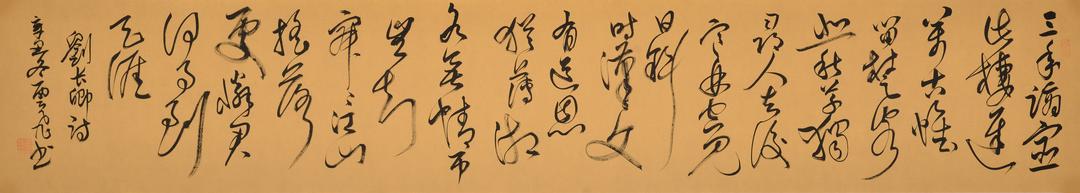 三年謫宦
此棲遲
萬古惟
留楚客
悲秋草獨
尋人去後
寒林空見
日斜
時漢文
有道恩
猶薄湘
水無情弔
豈知
寂々江山
搖落
處憐君
何事到
天涯
劉長卿詩
辛丑冬雲飛书